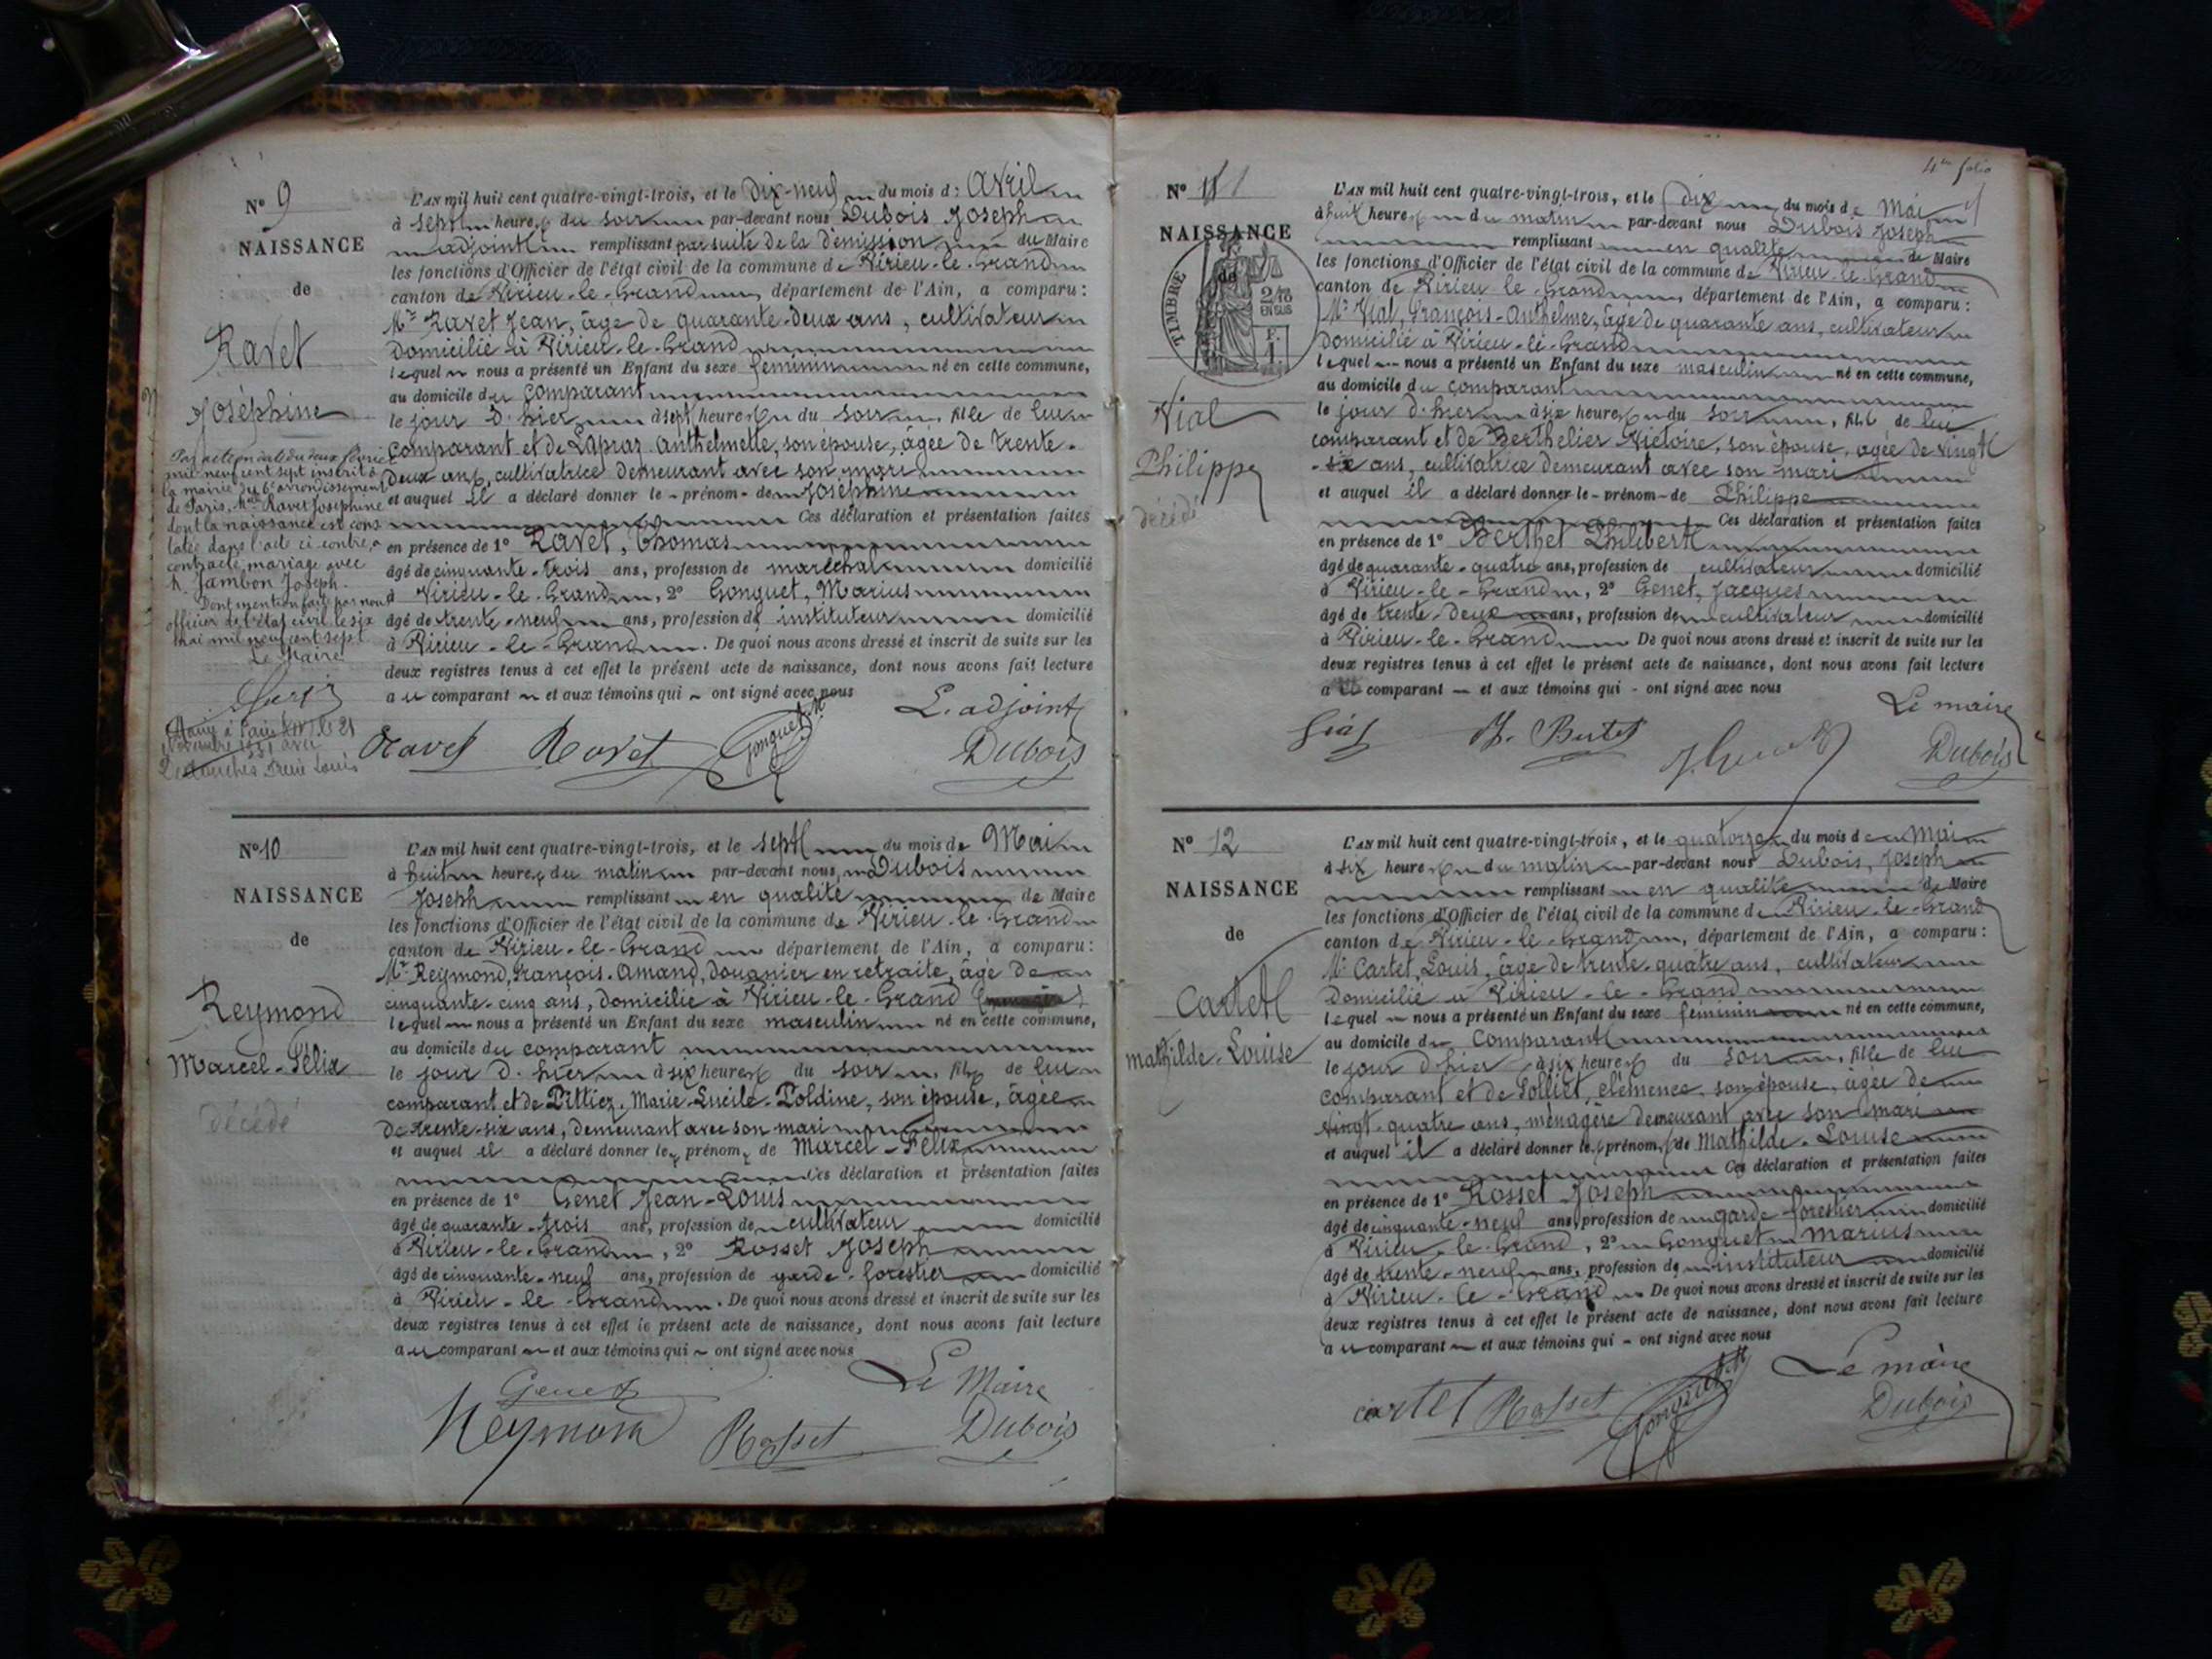 N° 9
NAISSANCE
de
Ravet
Joséphine
Par acte en date du deux février
mil neuf cent sept inscrit à
la mairie du 6e arrondissement
de Paris, Mlle Ravet Joséphine
dont la naissance est cons
tatée dans l'acte ci-contre, a
contracté mariage avec
M. Jambon Joseph.
Dont mention faite par nous
officier de l'état civil le six
mai mil neuf cent sept.
Le Maire
à Paris
Novembre avec
Louis
L'AN mil huit cent quatre-vingt-trois, et le dix-neuf du mois d' Avril
à sept heures du soir par-devant nous Dubois Joseph
adjoint remplissant par suite de la démission du Maire
les fonctions d'Officier de l'état civil de la commune de Virieu-le-Grand
canton de Virieu-le-Grand, département de l'Ain, a comparu :
Mr Ravet Jean, âgé de quarante-deux ans, cultivateur
domicilié à Virieu-le-Grand
lequel nous a présenté un Enfant du sexe féminin né en cette commune,
au domicile du comparant
le jour d'hier à sept heures du soir, fille de lui
comparant et de Lapraz Anthelmette, son épouse, âgée de trente-
deux ans, cultivatrice demeurant avec son mari
et auquel il a déclaré donner le prénom de Joséphine
Ces déclaration et présentation faites
en présence de 1° Ravet, Thomas
âgé de cinquante-trois ans, profession de maréchal domicilié
à Virieu-le-Grand, 2° Gonguet, Marius
âgé de trente-neuf ans, profession d' instituteur domicilié
à Virieu-le-Grand. De quoi nous avons dressé et inscrit de suite sur les
deux registres tenus à cet effet le présent acte de naissance, dont nous avons fait lecture
au comparant et aux témoins qui ont signé avec nous
L'adjoint
Ravet Ravet Gonguet M. Dubois
N° 10
NAISSANCE
de
Reymond
Marcel-Félix
décédé
L'AN mil huit cent quatre-vingt-trois, et le sept du mois de Mai
à huit heures du matin par-devant nous Dubois
Joseph remplissant en qualité de Maire
les fonctions d'Officier de l'état civil de la commune de Virieu-le-Grand
canton de Virieu-le-Grand département de l'Ain, a comparu :
Mr Reymond, François-Amand, douanier en retraite, âgé de
cinquante-cinq ans, domicilié à Virieu-le-Grand
lequel nous a présenté un Enfant du sexe masculin né en cette commune,
au domicile du comparant
le jour d'hier à six heures du soir, fils de lui
comparant et de Pittiez, Marie-Lucile-Poldine, son épouse, âgée
de trente-six ans, demeurant avec son mari
et auquel il a déclaré donner les prénoms de Marcel-Félix
Ces déclaration et présentation faites
en présence de 1° Genet Jean-Louis
âgé de quarante-trois ans, profession de cultivateur domicilié
à Virieu-le-Grand, 2° Rosset Joseph
âgé de cinquante-neuf ans, profession de garde-forestier domicilié
à Virieu-le-Grand. De quoi nous avons dressé et inscrit de suite sur les
deux registres tenus à cet effet le présent acte de naissance, dont nous avons fait lecture
au comparant et aux témoins qui ont signé avec nous
Genet Le Maire
Reymond Rosset Dubois
4me folio
N° 11
NAISSANCE
de
TIMBRE
2/10
EN SUS
F.
1.
Vial
Philippe
décédé
L'AN mil huit cent quatre-vingt-trois, et le dix du mois de Mai
à huit heures du matin par-devant nous Dubois Joseph
remplissant en qualité de Maire
les fonctions d'Officier de l'état civil de la commune de Virieu-le-Grand
canton de Virieu-le-Grand, département de l'Ain, a comparu :
Mr Vial, François-Anthelme, âgé de quarante ans, cultivateur
domicilié à Virieu-le-Grand
lequel nous a présenté un Enfant du sexe masculin né en cette commune,
au domicile du comparant
le jour d'hier à six heures du soir, fils de lui
comparant et de Berthelier Victoire, son épouse, âgée de vingt
-six ans, cultivatrice demeurant avec son mari
et auquel il a déclaré donner le prénom de Philippe
Ces déclaration et présentation faites
en présence de 1° Berthet Philibert
âgé de quarante-quatre ans, profession de cultivateur domicilié
à Virieu-le-Grand, 2° Genet, Jacques
âgé de trente-deux ans, profession de cultivateur domicilié
à Virieu-le-Grand De quoi nous avons dressé et inscrit de suite sur les
deux registres tenus à cet effet le présent acte de naissance, dont nous avons fait lecture
au comparant et aux témoins qui ont signé avec nous
Le maire
Dubois
N° 12
NAISSANCE
de
Cartet
Mathilde-Louise
L'AN mil huit cent quatre-vingt-trois, et le quatorze du mois de Mai
à six heures du matin par-devant nous Dubois, Joseph
remplissant en qualité de Maire
les fonctions d'Officier de l'état civil de la commune de Virieu-le-Grand
canton de Virieu-le-Grand, département de l'Ain, a comparu :
Mr Cartet, Louis, âgé de trente-quatre ans, cultivateur
domicilié à Virieu-le-Grand
lequel nous a présenté un Enfant du sexe féminin né en cette commune,
au domicile du comparant
le jour d'hier à six heures du soir, fille de lui
comparant et de Solliet, clémence, son épouse, âgée de
vingt-quatre ans, ménagère demeurant avec son mari
et auquel il a déclaré donner les prénoms de Mathilde-Louise
Ces déclaration et présentation faites
en présence de 1° Rosset Joseph
âgé de cinquante-neuf ans, profession de garde-forestier domicilié
à Virieu-le-Grand, 2° Gonguet Marius
âgé de trente-neuf ans, profession d' instituteur domicilié
à Virieu-le-Grand De quoi nous avons dressé et inscrit de suite sur les
deux registres tenus à cet effet le présent acte de naissance, dont nous avons fait lecture
au comparant et aux témoins qui ont signé avec nous
Le maire
cartet Rosset Gonguet M. Dubois